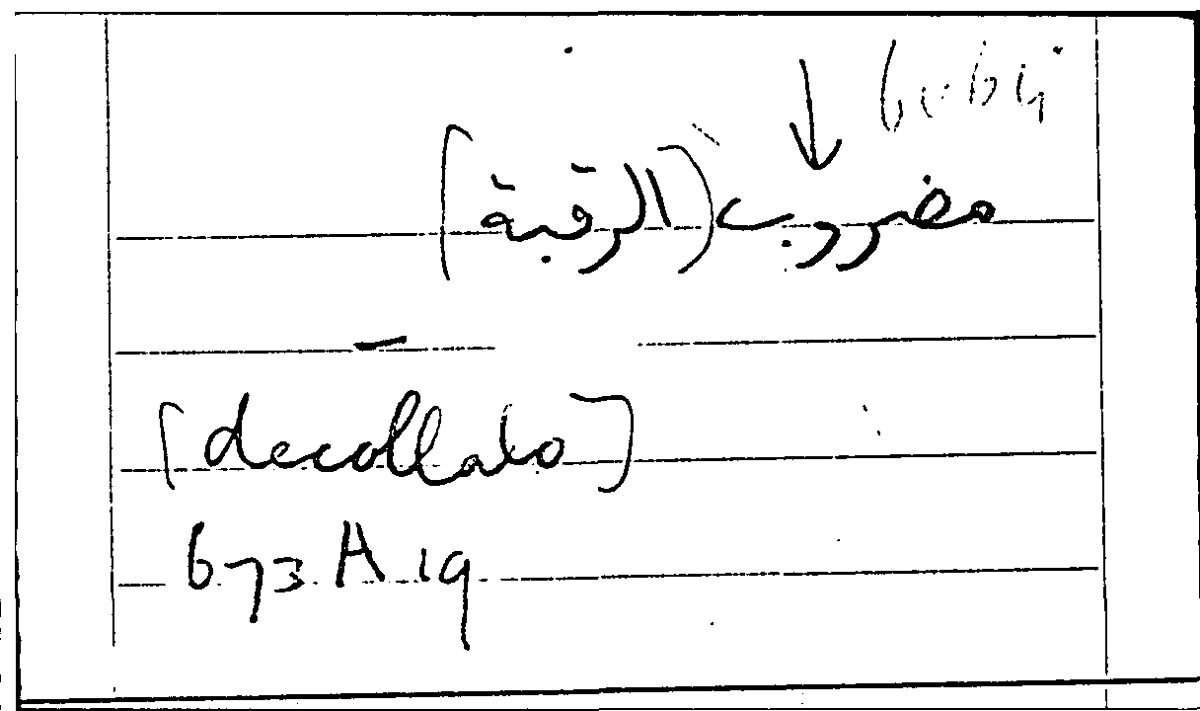 ↓
مضروب (الرقبة)
[decollato]
673 A 19